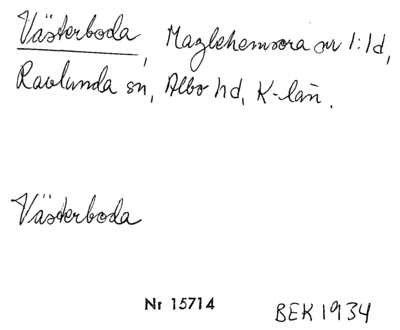 Västerboda, Maglehemsora nr 1:1d,
Ravlunda sn, Albo hd, K-län.
Västerboda
Nr 15714
BEK 1934